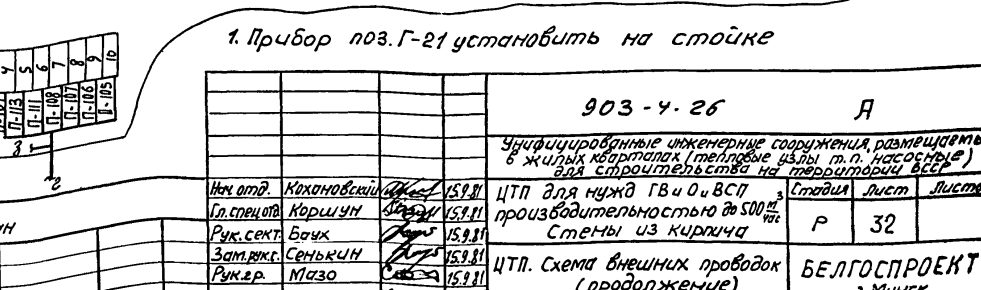 1. Прибор поз. Г-21 установить на стойке
4 5 6 7 8 9 10
П-113 П-111 П-108 П-107 П-106 П-105
3
2
903-4-26 А
Унифицированные инженерные сооружения, размещаемы
в жилых кварталах (тепловые узлы т.п. насосные)
для строительства на территории БССР
Нач. отд. Кохановский 15.9.81
Гл. спец. отд. Коршун 15.9.81
Рук. сект. Баух 15.9.81
Зам. рук. г. Сенькин 15.9.81
Рук. гр. Мазо 15.9.81
ЦТП для нужд ГВ и О и ВСП
производительностью до 500 м³/час
Стены из кирпича
Стадия Лист Листо
Р 32
ЦТП. Схема внешних проводок
(продолжение)
БЕЛГОСПРОЕКТ
г. Минск